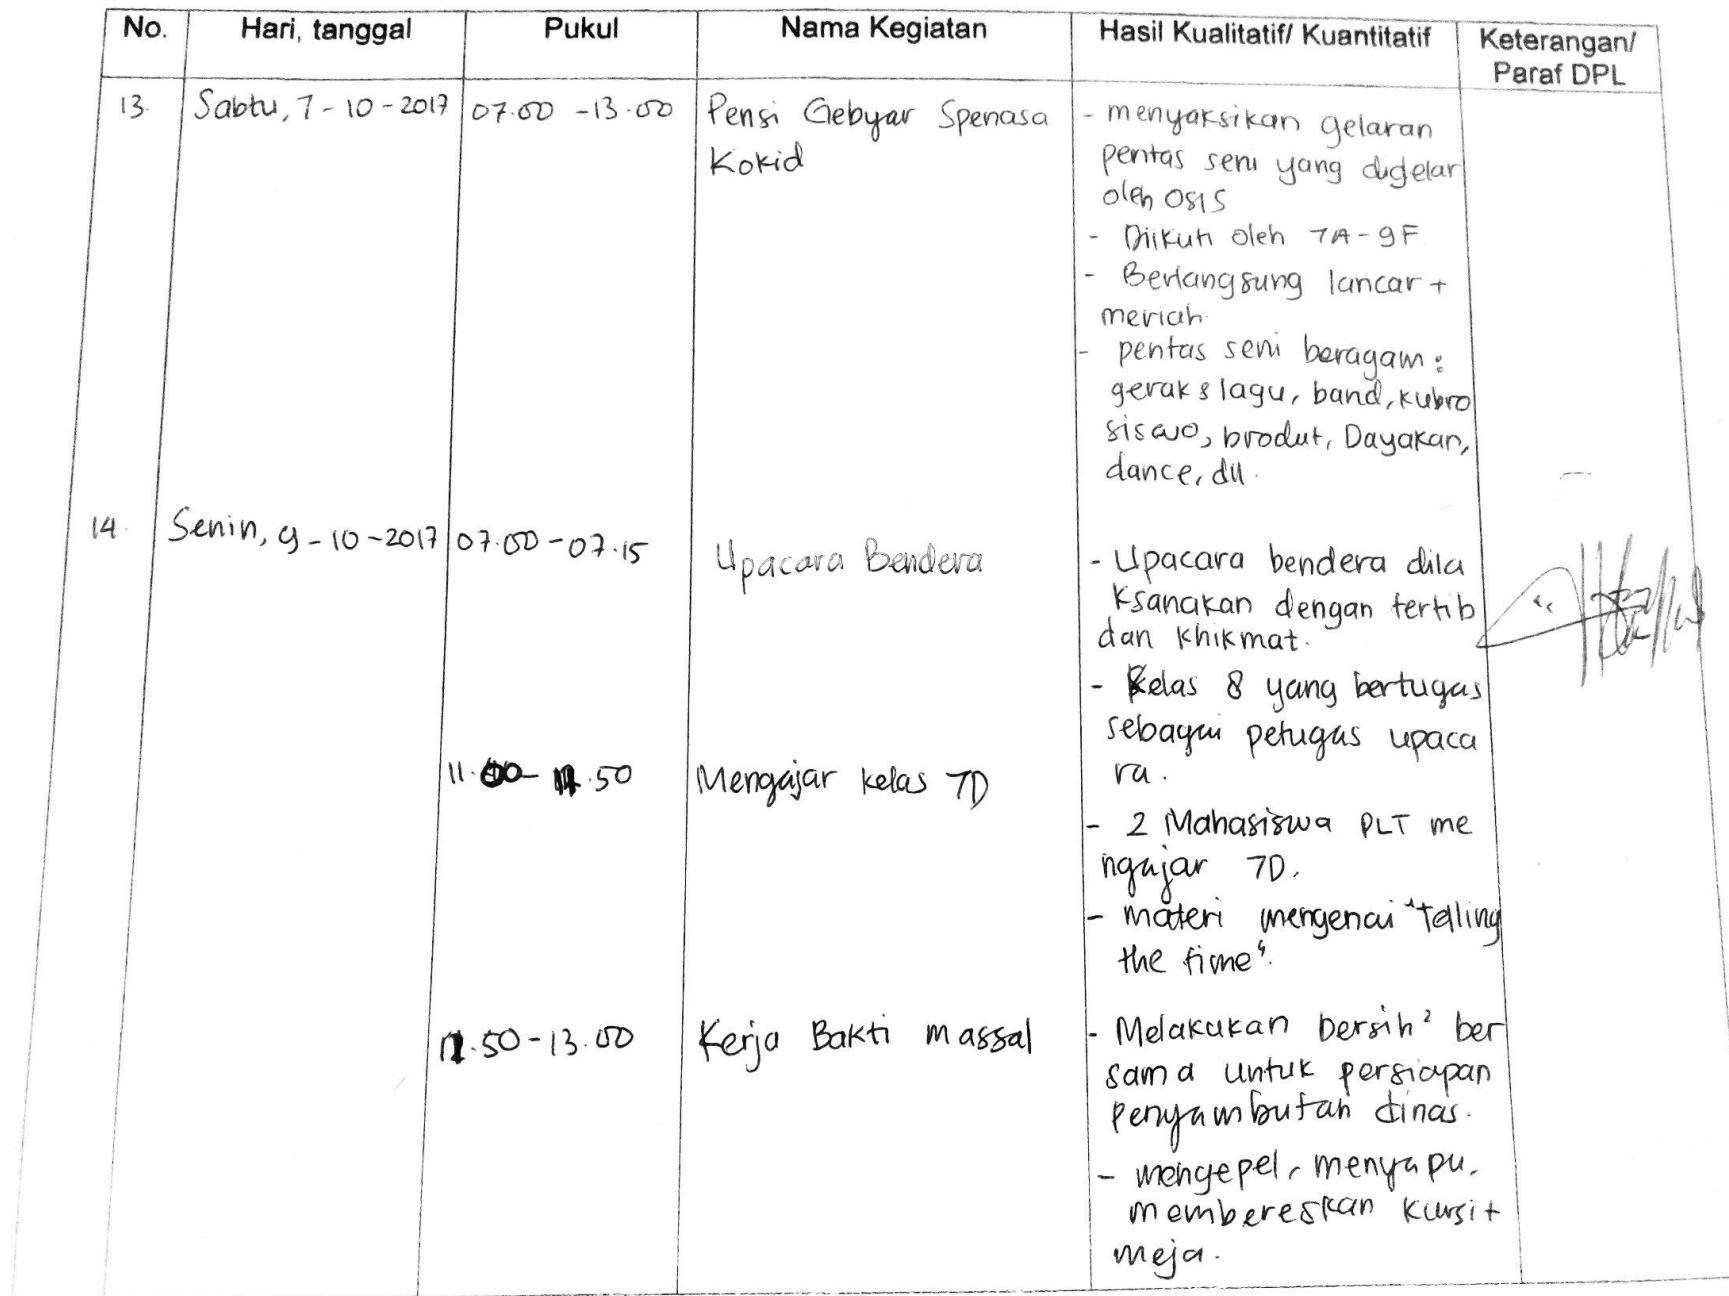 No. Hari, tanggal Pukul Nama Kegiatan Hasil Kualitatif/ Kuantitatif Keterangan/
Paraf DPL
13. Sabtu, 7-10-2017 07.00 - 13.00 Pensi Gebyar Spenasa
Kokid
- menyaksikan gelaran
pentas seni yang digelar
oleh OSIS
- Diikuti oleh 7A - 9F
- Berlangsung lancar +
meriah.
- pentas seni beragam :
gerak & lagu, band, kubro
siswo, brodut, Dayakan,
dance, dll.
14. Senin, 9-10-2017 07.00 - 07.15 Upacara Bendera
- Upacara bendera dila
ksanakan dengan tertib
dan khikmat.
- Kelas 8 yang bertugas
sebagai petugas upaca
ra.
11.00 - .50 Mengajar kelas 7D
- 2 Mahasiswa PLT me
ngajar 7D.
- materi mengenai "telling
the time".
.50 - 13.00 Kerja Bakti massal
- Melakukan bersih² ber
sama untuk persiapan
penyambutan dinas.
- mengepel, menyapu,
membereskan kursi +
meja.